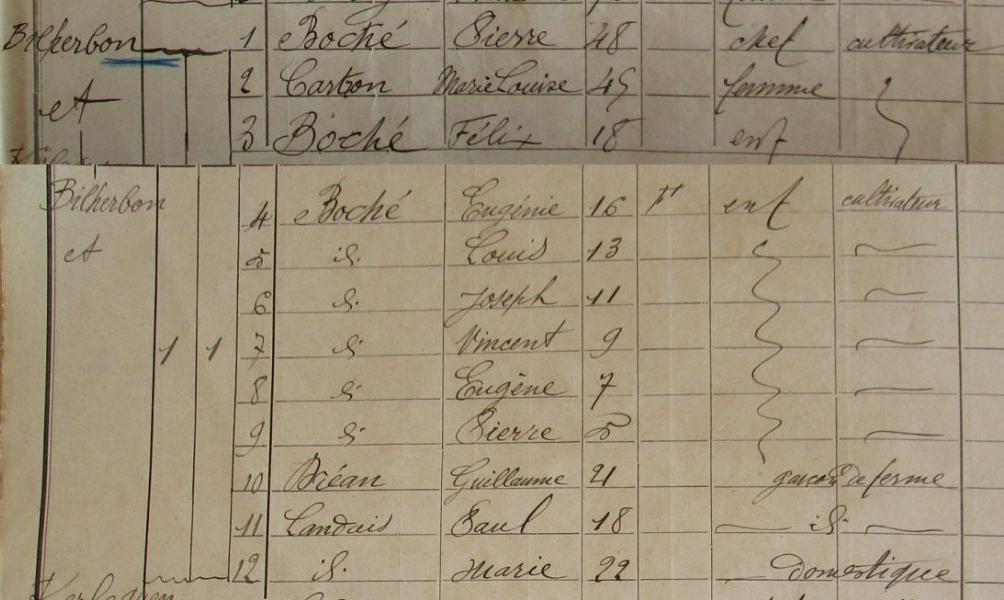 Bilherbon 1 Boché Pierre 48 chef cultivateur
2 Carbon Marie Louise 45 femme
et
3 Boché Félix 18 enf
Bilherbon
4 Boché Eugénie 16 F enf cultivateur
et
5 id. Louis 13
6 id. Joseph 11
1 1 7 id. Vincent 9
8 id. Eugène 7
9 id. Pierre 5
10 Bréan Guillaume 21 garçon de ferme
11 Landais Paul 18 id.
12 id. Marie 22 domestique